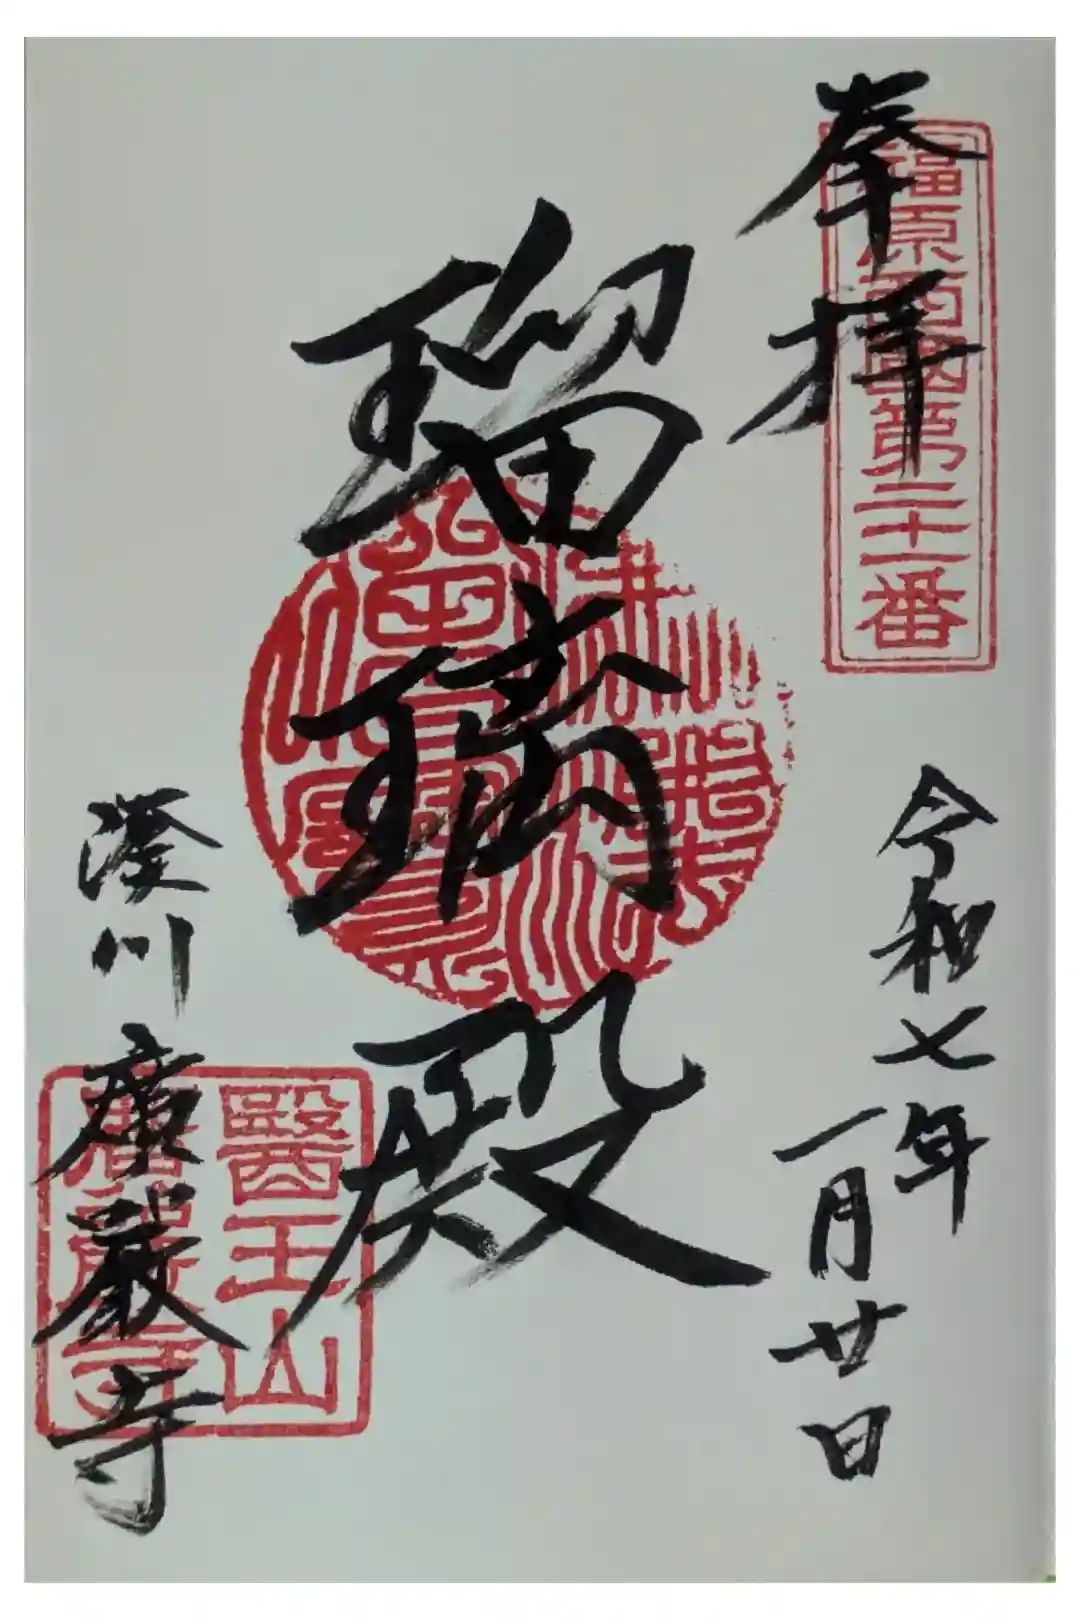 奉拝
福原西國第二十一番
令和七年
一月廿日
瑠璃殿
醫王山
廣嚴寺
湊川廣嚴寺